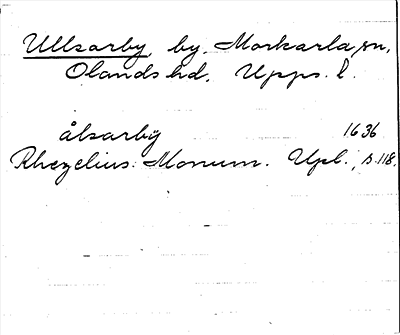 Ullsarby, by, Morkarla sn,
Olands hd, Upps. l.
ålsarbÿ 1636
Rhezelius: Monum. Upl., s. 118.